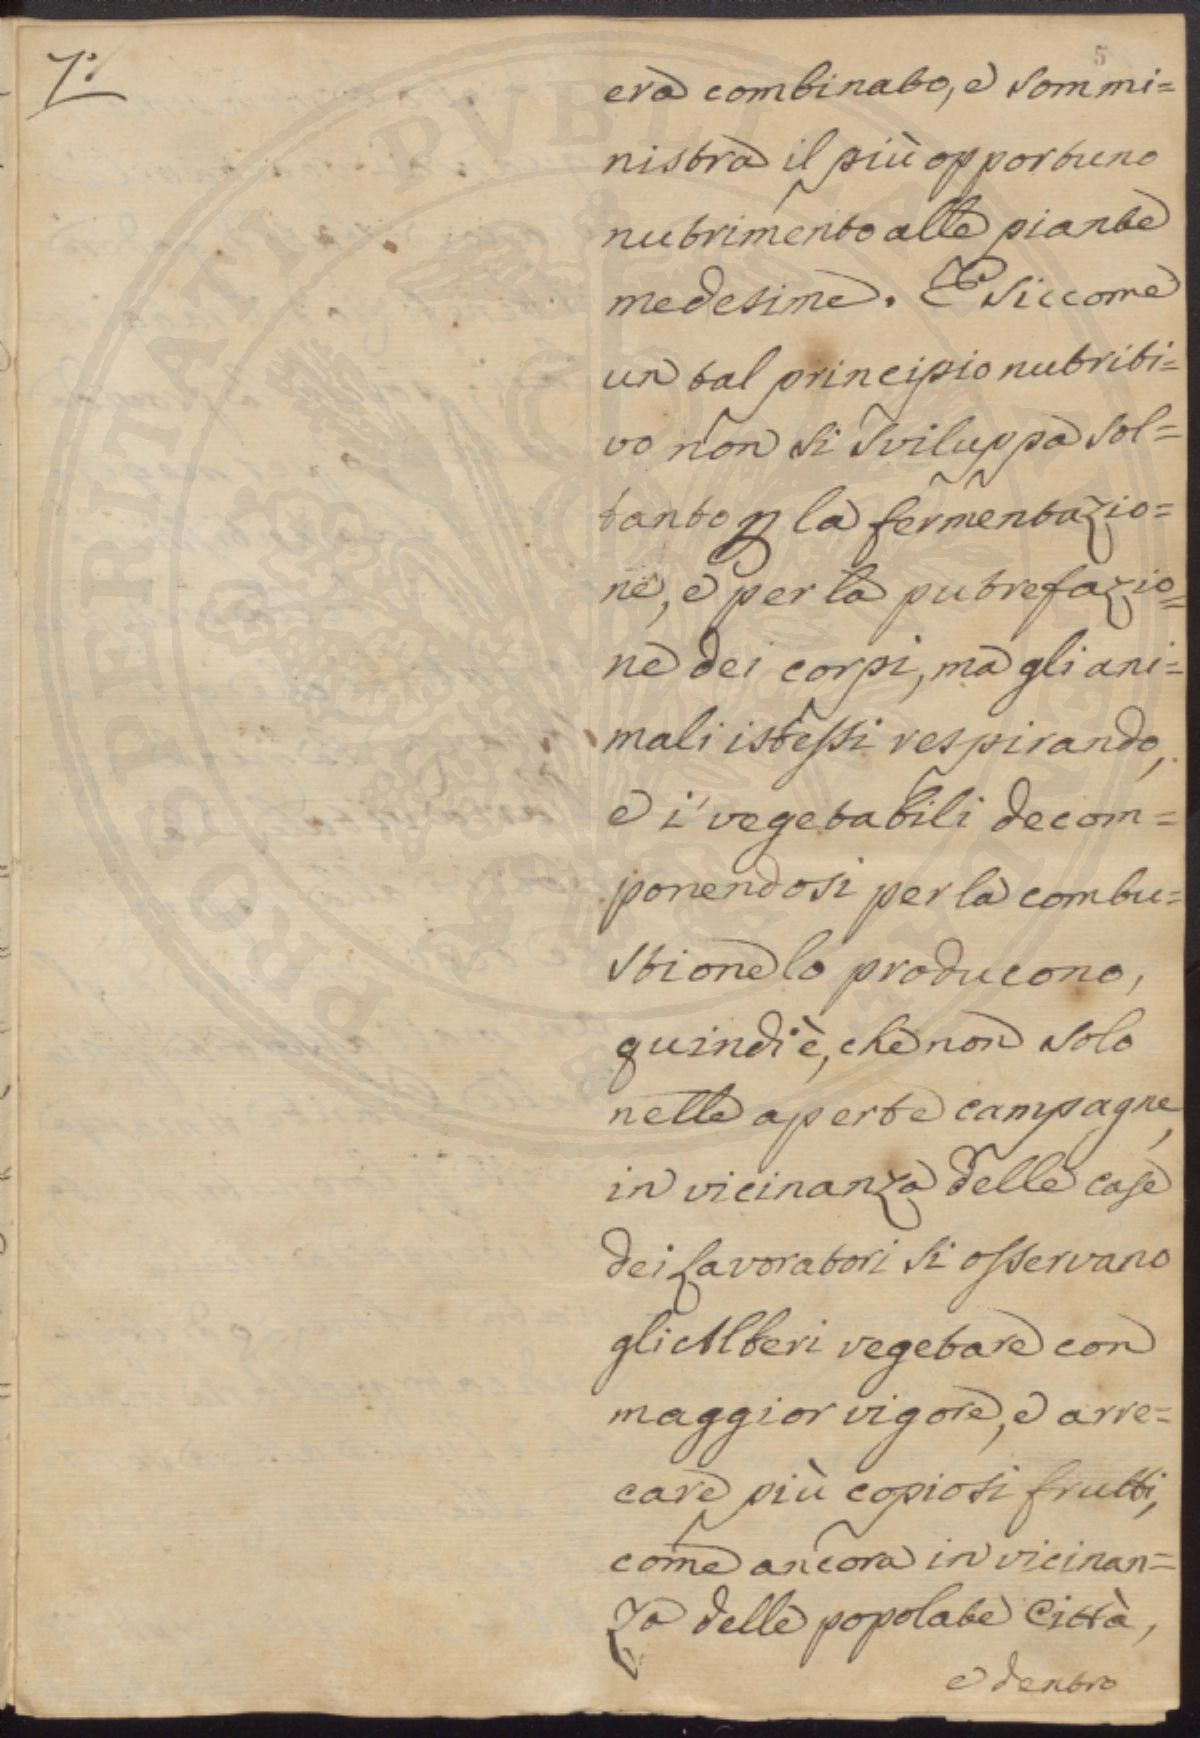 7:
5
era combinato, e sommi=
nistra il più opportuno
nutrimento alle piante
medesime. E siccome
un tal principio nutriti=
vo non si sviluppa sol=
tanto p la fermentazio=
ne, e per la putrefazio=
ne dei corpi, ma gli ani=
mali istessi respirando,
e i' vegetabili decom=
ponendosi per la combu=
stione lo producono,
quindi è, che non solo
nelle aperte campagne,
in vicinanza delle case
dei Lavoratori si osservano
gli Alberi vegetare con
maggior vigore, e arre=
care più copiosi frutti,
come ancora in vicinan=
za delle popolate Città,
e dentro
PROSPERITATI PVBLICAE